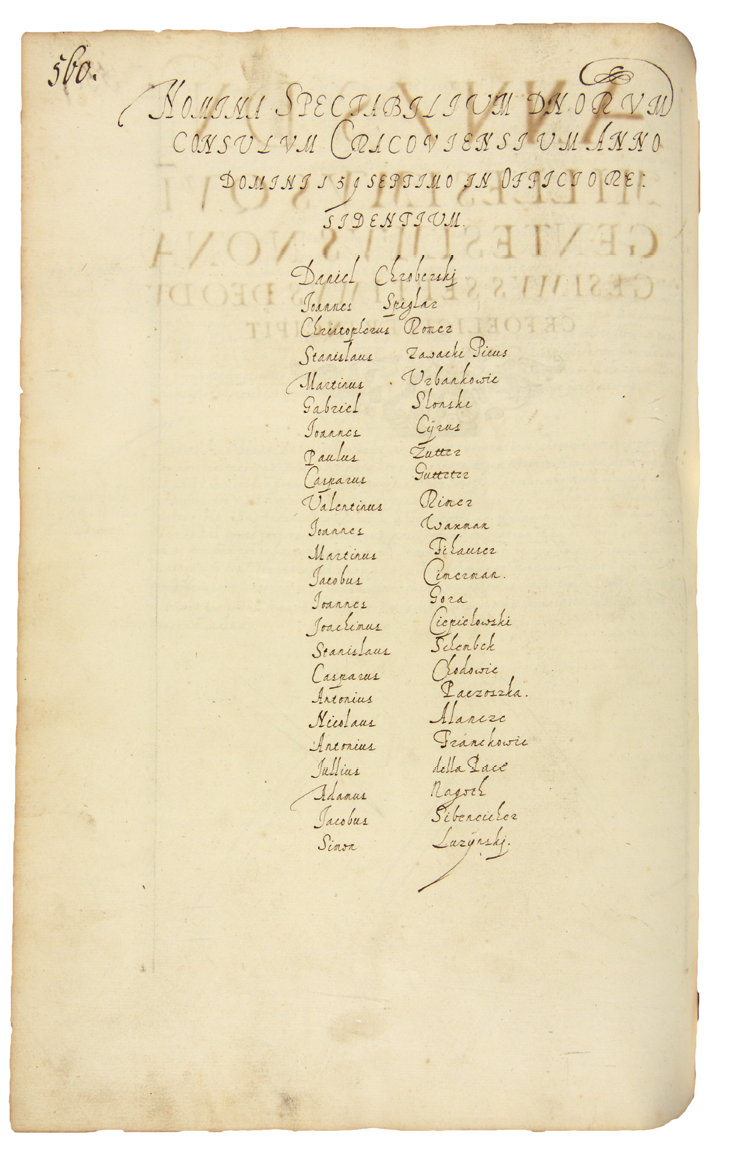 560.
NOMINA SPECTABILIUM DNORVM
CONSVLVM CRACOVIENSIUM ANNO
DOMINI 159 SEPTIMO IN OFFICIO RE:
SIDENTIVM.
Daniel Chroberskj
Joannes Spiglar
Christopherus Romer
Stanislaus Zawacki Picus
Martinus Urbankowic
Gabriel Slonski
Joannes Cÿrus
Paulus Zutter
Casparus Gutteter
Valentinus Rimer
Joannes Waxman
Martinus Fihauser
Jacobus Cimerman.
Joannes Gora
Joachimus Ciepielowski
Stanislaus
Casparus Chodowic
Antonius Paczoszka.
Nicolaus
Antonius Franckowic
Jullius della Pace
Adamus Nagoth
Jacobus Sibeneicher
Simon Luzÿnskj.